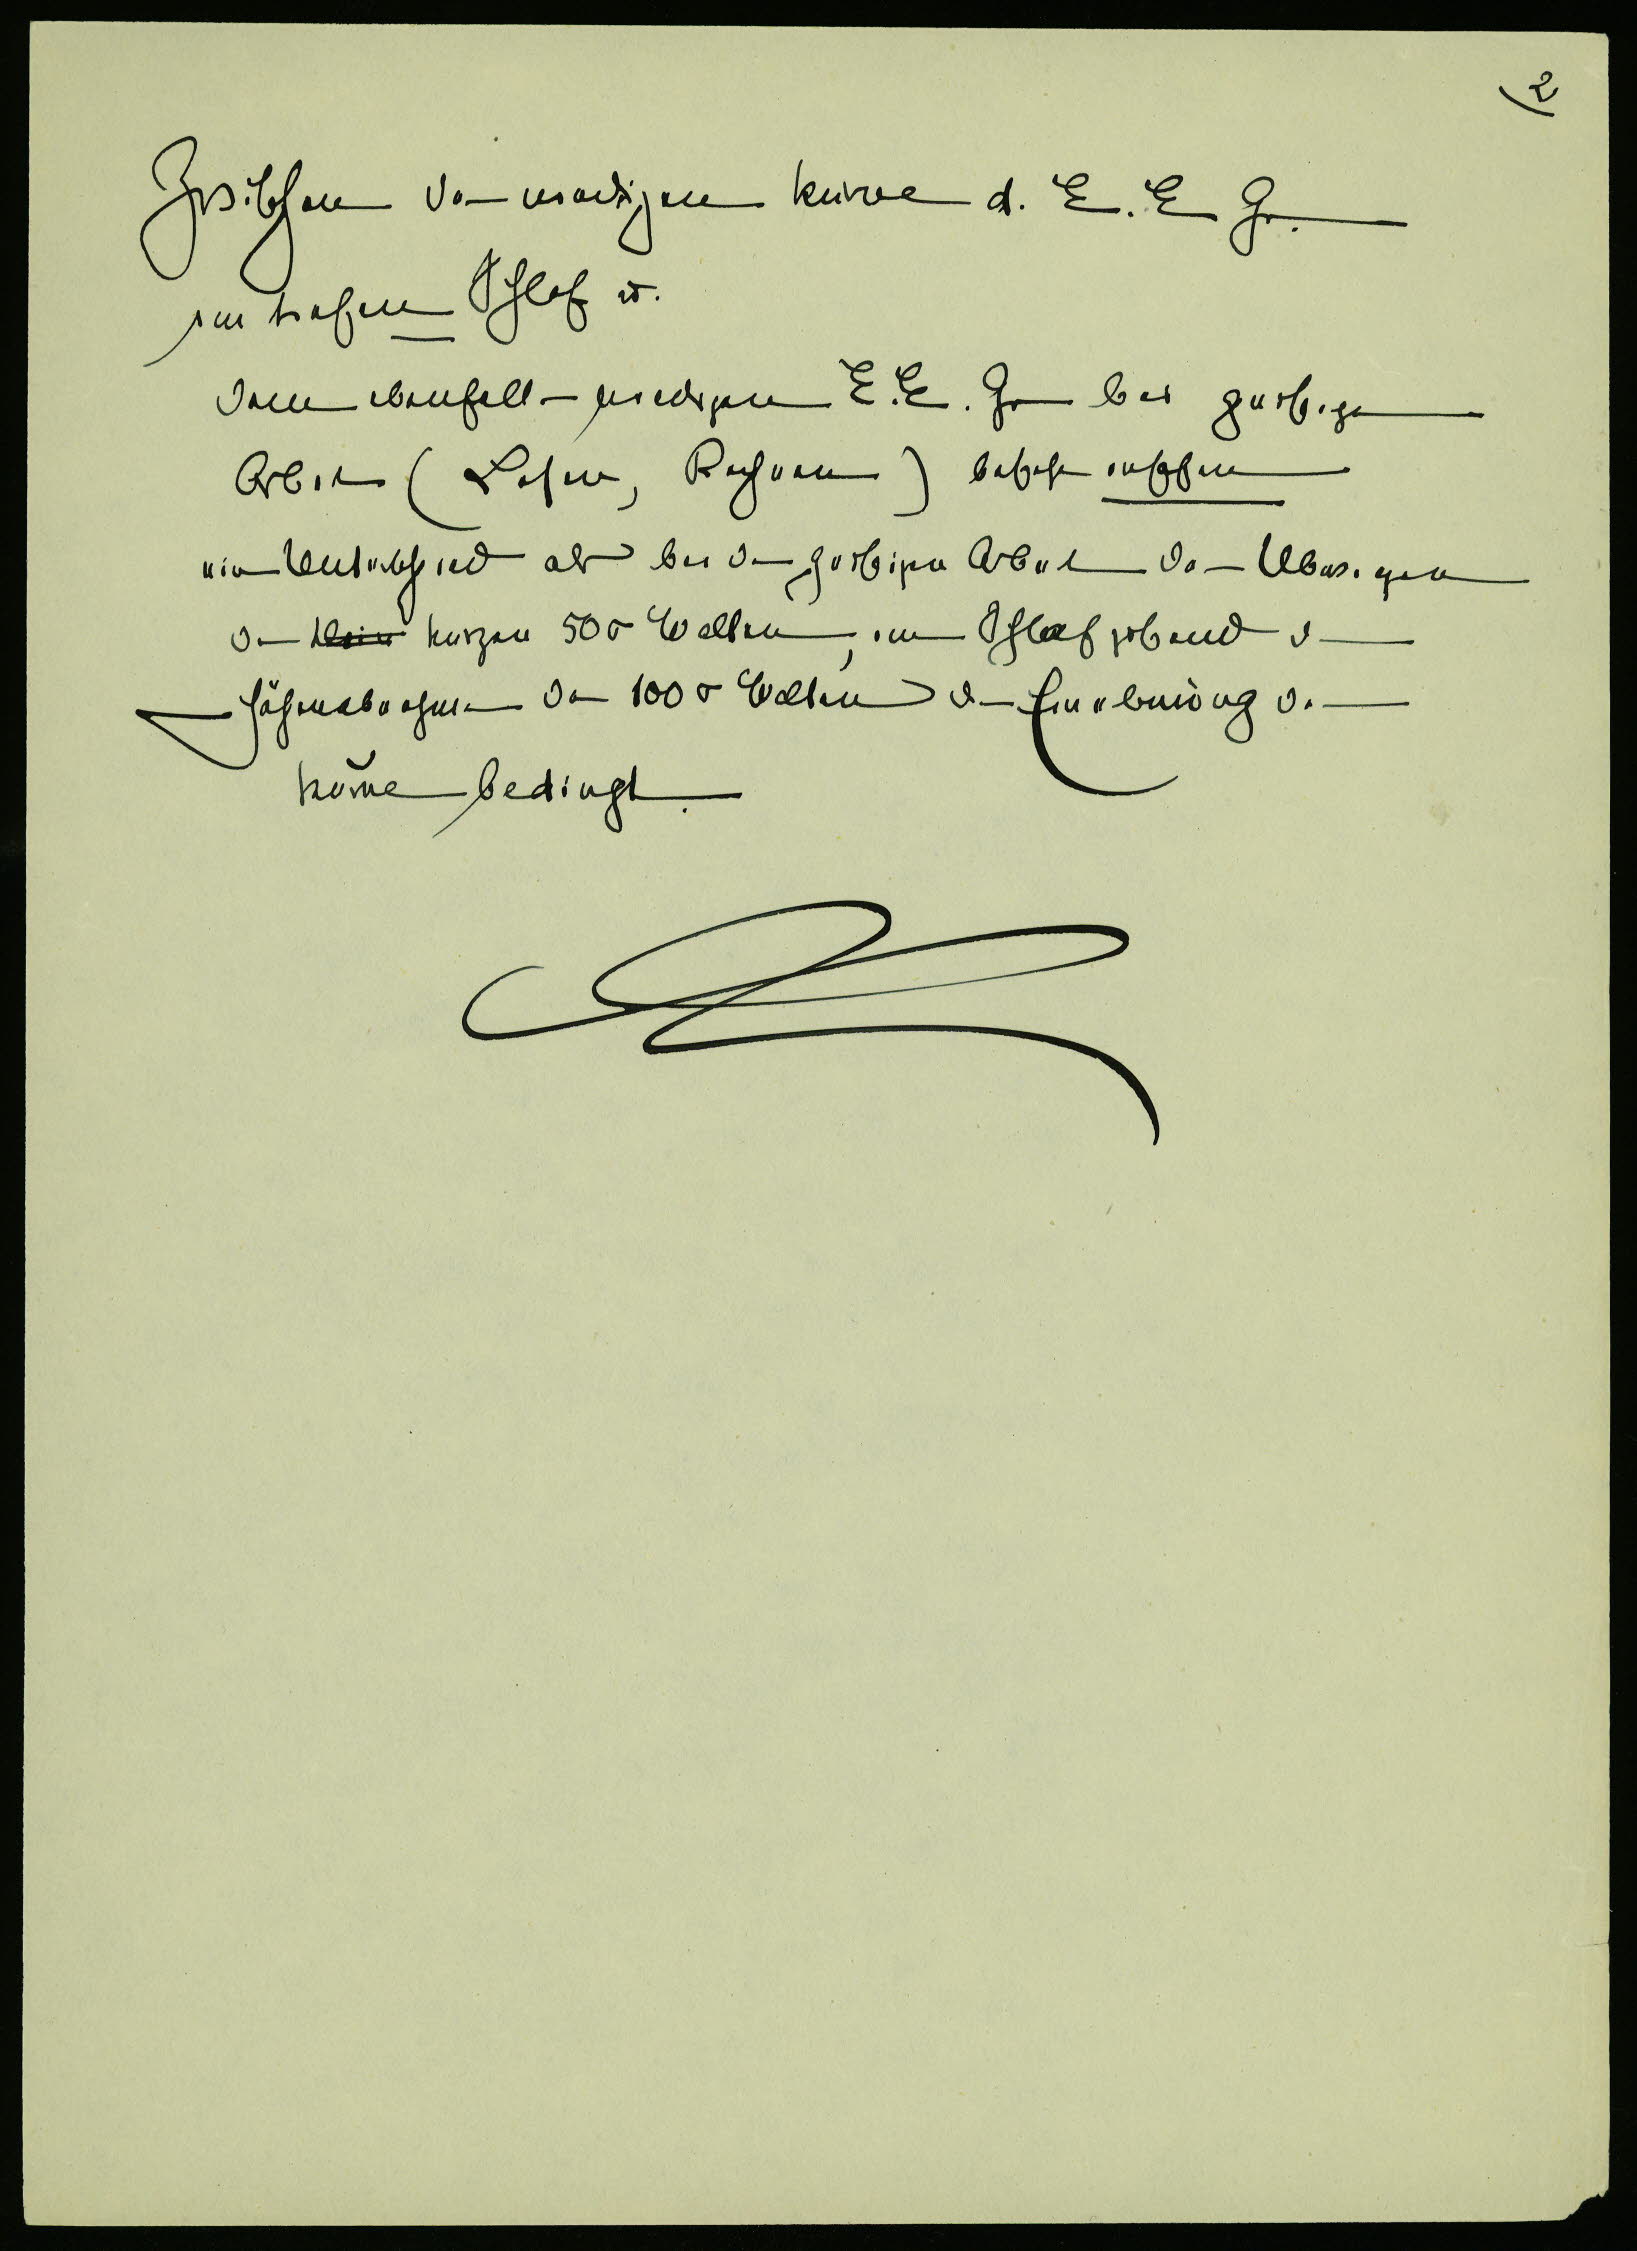 2
Zwischen der niedrigen Kurve d. E. E. G.
im tiefen Schlaf u.
dem ebenfalls niedrigen E. E. G. bei geistiger
Arbeit (Lesen, Rechnen) besteht insofern
ein Unterschied als bei der geistigen Arbeit das Überwiegen
der kurzen 50 σ Wellen, im Schlaf während d
Höhenabnahme der 100 σ Wellen die Einebnung der
Kurve bedingt.